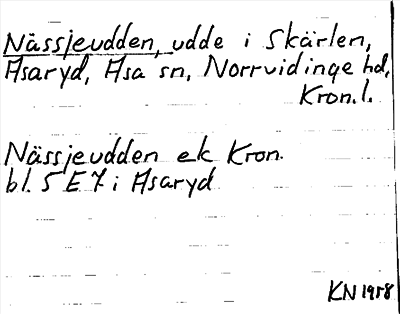 Nässjeudden, udde i Skärlen,
Asaryd, Asa sn, Norrvidinge hd,
Kron. l.
Nässjeudden ek Kron.
bl. 5 E 7 i Asaryd
KN 1958